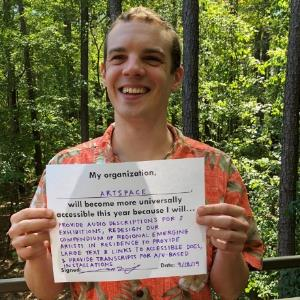 My organization,
ARTSPACE,
will become more universally
accessible this year because I will...
PROVIDE AUDIO DESCRIPTIONS FOR 2
EXHIBITIONS, REDESIGN OUR
COMPENDIUM OF REGIONAL EMERGING
ARTISTS IN RESIDENCE TO PROVIDE
LARGE TEXT & LINKS TO ACCESSIBLE DOCS,
& PROVIDE TRANSCRIPTS FOR A/V-BASED
INSTALLATIONS
Signed: Date: 9/28/19